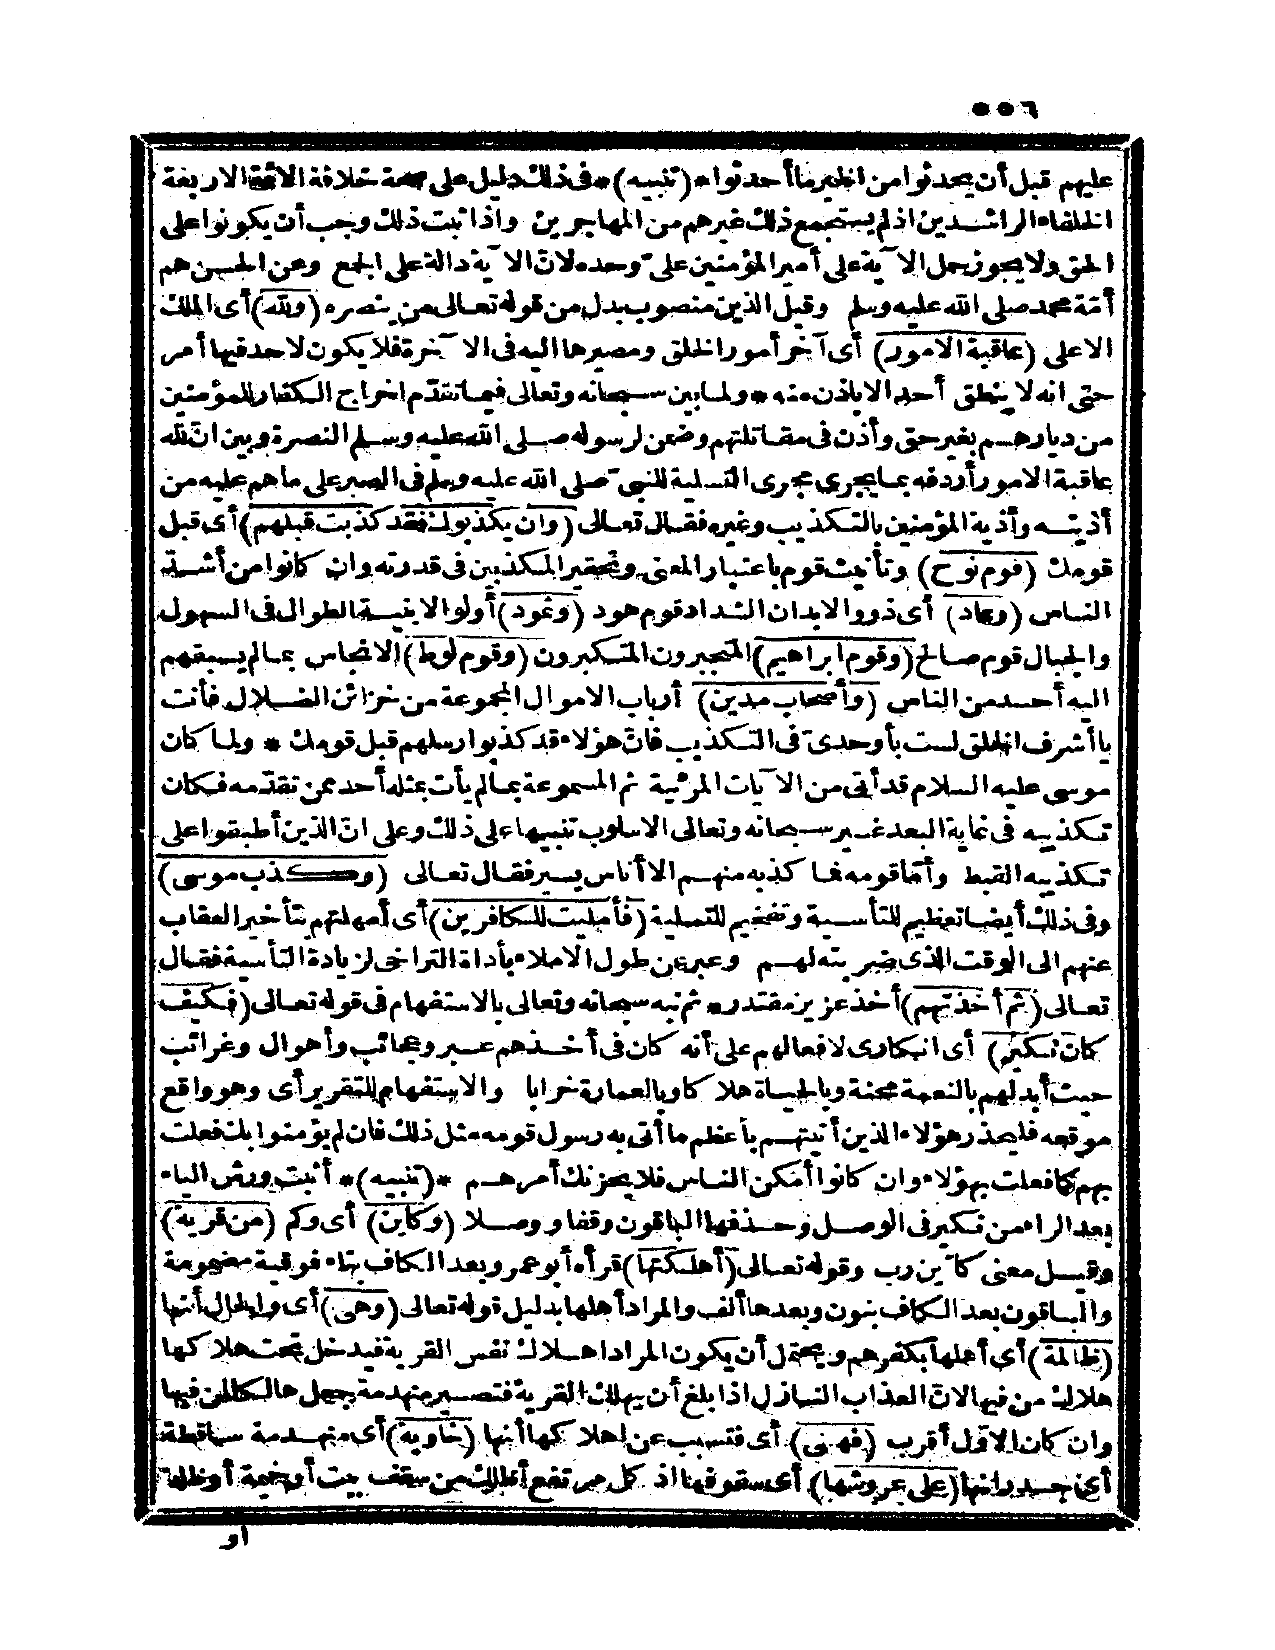 ٥٥٦
عليهم قبل أن يحدثوا من الخير ما أحدثوا * (تنبيه) * فى ذلك دليل على صحة خلافة الائمة الاربعة
الخلفاء الراشدين اذ لم يستجمع ذلك غيرهم من المهاجرين واذا ثبت ذلك وجب أن يكونوا على
الحق ولا يجوز حمل الآية على أمير المؤمنين علىّ وحده لانّ الآية دالة على الجمع وعن الحسن هم
أمّة محمد صلى الله عليه وسلم وقيل الذين منصوب بدل من قوله تعالى من ينصره (ولله) أى الملك
الاعلى (عاقبة الامور) أى آخر أمور الخلق ومصيرها اليه فى الآخرة فلا يكون لاحد فيها أمر
حتى انه لا ينطق أحد الا باذن منه * ولما بين سبحانه وتعالى فيما تقدّم اخراج الكفار للمؤمنين
من ديارهم بغير حق وأذن فى مقاتلتهم وضمن لرسوله صلى الله عليه وسلم النصرة وبين انّ لله
عاقبة الامور أردفه بما يجرى مجرى التسلية للنبىّ صلى الله عليه وسلم فى الصبر على ما هم عليه من
أذيته وأذية المؤمنين بالتكذيب وغيره فقال تعالى (وان يكذبوك فقد كذبت قبلهم) أى قبل
قومك (قوم نوح) وتأنيث قوم باعتبار المعنى وتحقير المكذبين فى قدرته وان كانوا من أشدّ
الناس (وعاد) أى ذوو الابدان الشداد قوم هود (وثمود) أولو الابنية الطوال فى السهول
والجبال قوم صالح (وقوم ابراهيم) المتجبرون المتكبرون (وقوم لوط) الانجاس بما لم يسبقهم
اليه أحد من الناس (وأصحاب مدين) أرباب الاموال المجموعة من خزائن الضلال فأنت
يا أشرف الخلق لست بأوحدىّ فى التكذيب فانّ هؤلاء قد كذبوا رسلهم قبل قومك * ولما كان
موسى عليه السلام قد أتى من الآيات المرئية ثم المسموعة بما لم يأت بمثله أحد ممن تقدّمه فكان
تكذيبه فى غاية البعد غير سبحانه وتعالى الاسلوب تنبيها على ذلك وعلى انّ الذين أطبقوا على
تكذيبه القبط وأمّا قومه فما كذبه منهم الا أناس يسير فقال تعالى (وكذب موسى)
وفى ذلك أيضا تعظيم للتأسية وتفخيم للتسلية (فأمليت للكافرين) أى أمهلتهم بتأخير العقاب
عنهم الى الوقت الذى ضربته لهم وعبر عن طول الاملاء بأداة التراخى لزيادة التأسية فقال
تعالى (ثم أخذتهم) أخذ عزيز مقتدر * ثم نبه سبحانه وتعالى بالاستفهام فى قوله تعالى (فكيف
كان نكير) أى انكارى لافعالهم على أنه كان فى أخذهم عبر وعجائب وأهوال وغرائب
حيث أبدلهم بالنعمة محنة وبالحياة هلاكا وبالعمارة خرابا والاستفهام للتقرير أى وهو واقع
موقعه فليحذر هؤلاء الذين أتيتهم بأعظم ما أتى به رسول قومه مثل ذلك فان لم يؤمنوا بك فعلت
بهم كما فعلت بهؤلاء وان كانوا أمكن الناس فلا يحزنك أمرهم * (تنبيه) * أثبت ورش الياء
بعد الراء من نكير فى الوصل وحذفها الباقون وقفا ووصلا (وكاين) أى وكم (من قرية)
وقيل معنى كاين رب وقوله تعالى (أهلكتها) قرأه أبو عمرو بعد الكاف بتاء فوقية مضمومة
والباقون بعد الكاف بنون وبعدها ألف والمراد أهلها بدليل قوله تعالى (وهى) أى والحال أنها
(ظالمة) أى أهلها بكفرهم ويحتمل أن يكون المراد اهلاك نفس القرية فيدخل تحت هلاكها
هلاك من فيها لانّ العذاب النازل اذا بلغ أن يهلك القرية فتصير منهدمة يجعل هالكا لمن فيها
وان كان الاوّل أقرب (فهى) أى فتسبب عن اهلاكها أنها (خاوية) أى منهدمة ساقطة
أى جدرانها (على عروشها) أى سقوفها اذ كل مرتفع أظلك من سقف بيت أو خيمة أو ظلة
أو